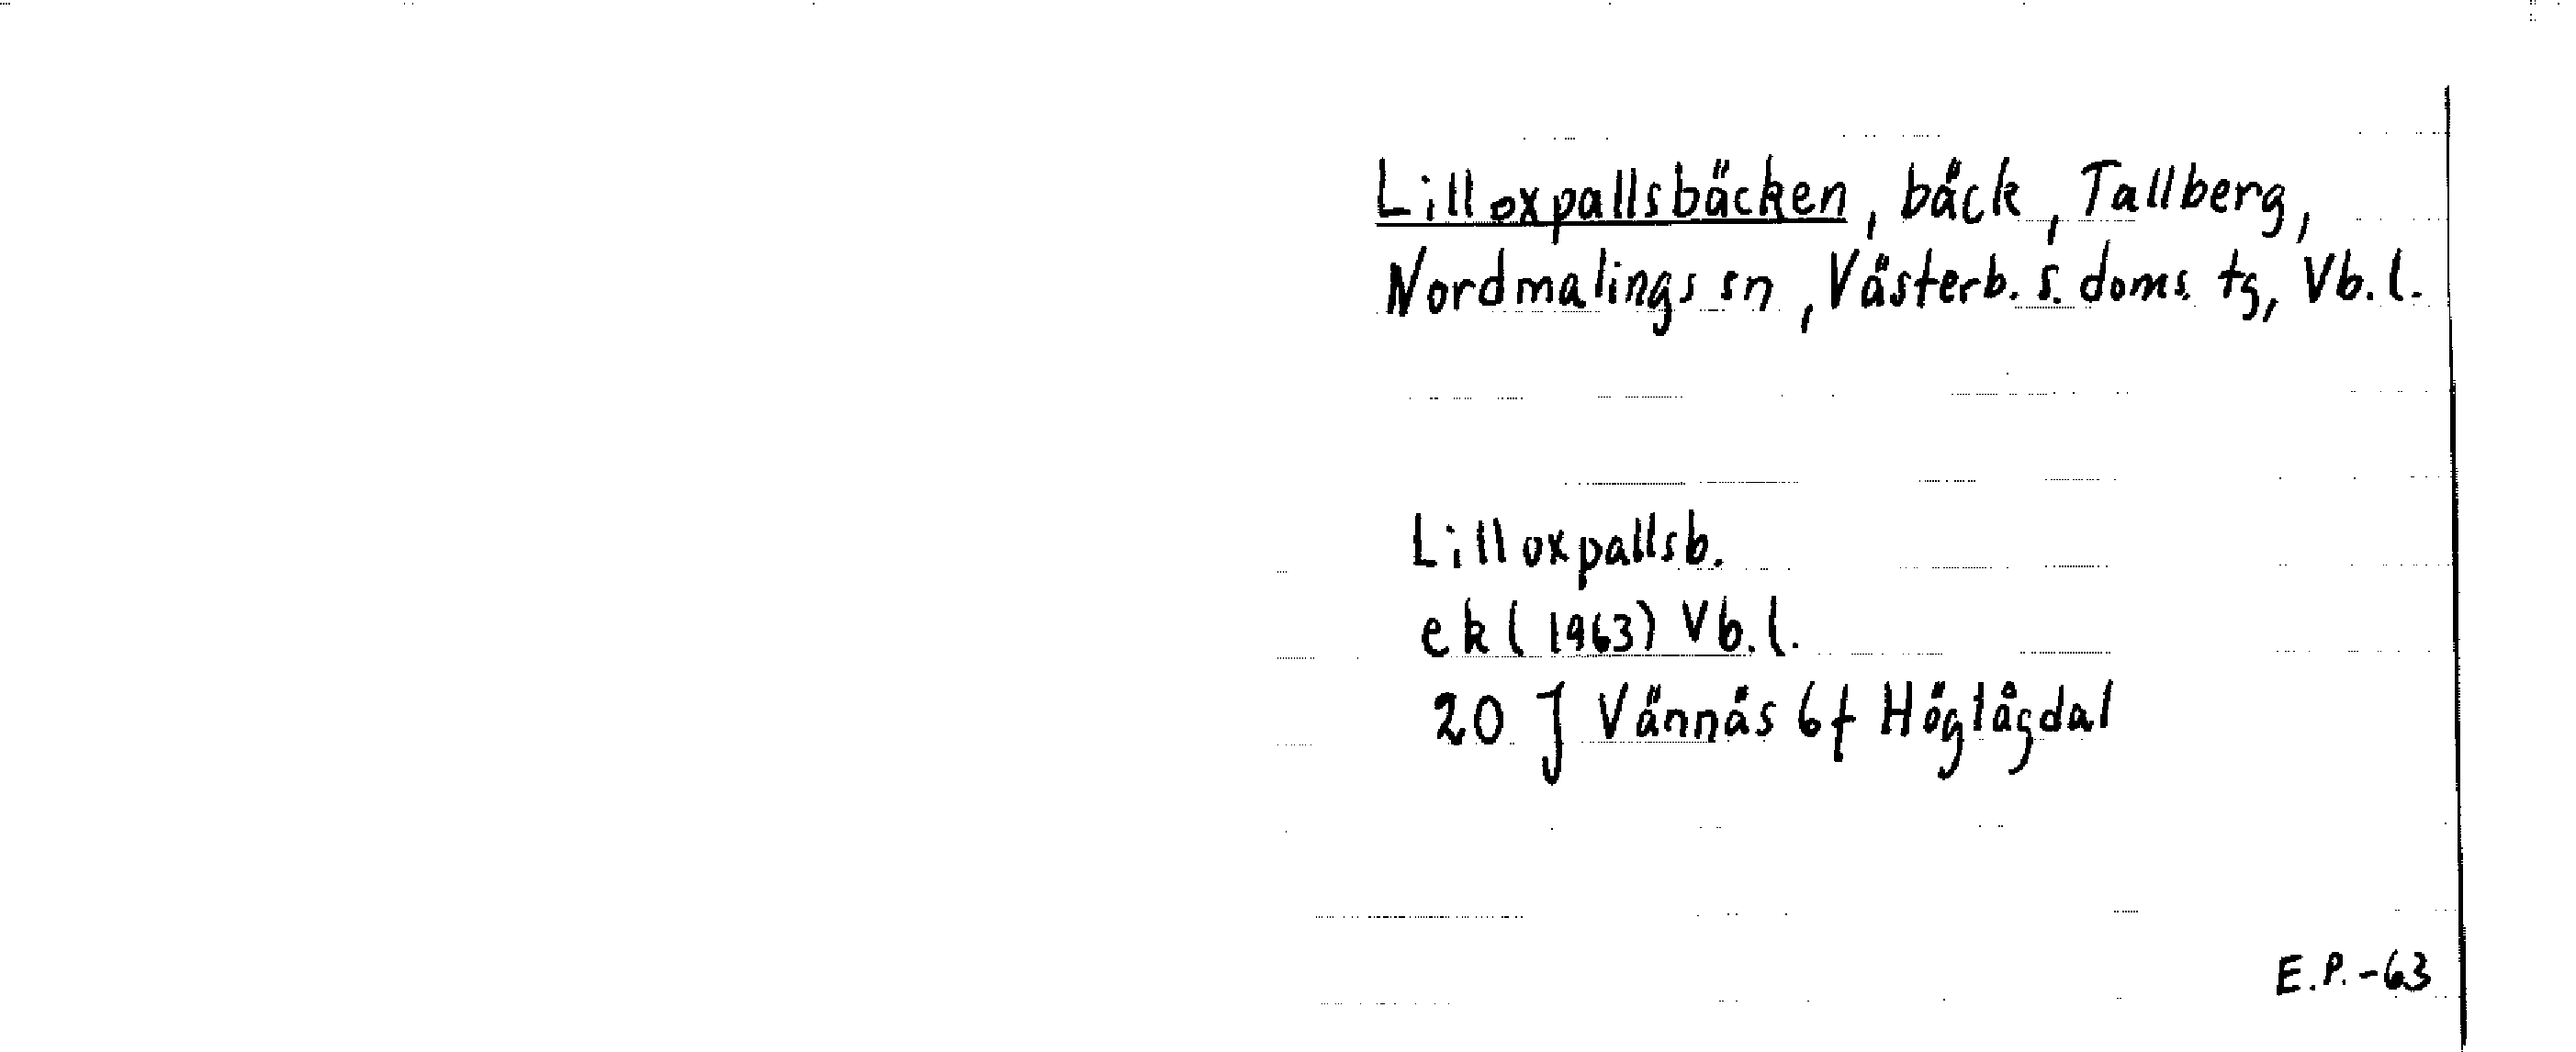 Lilloxpallsbäcken, bäck, Tallberg,
Nordmalings sn, Västerb. s. doms. tg, Vb. l.
Lilloxpallsb.
ek (1963) Vb. l.
20 J Vännäs 6f Höglågdal
E.P.-63